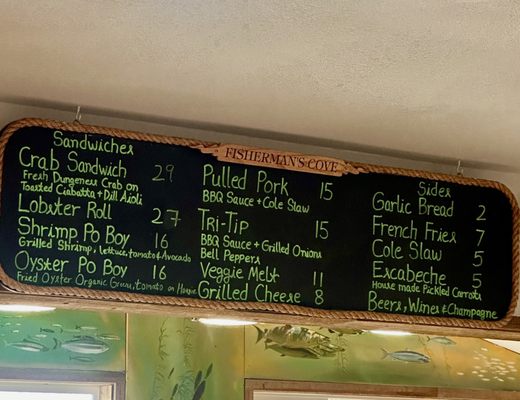 FISHERMAN'S COVE
Sandwiches
Crab Sandwich 29
Fresh Dungeness Crab on
Toasted Ciabatta + Dill Aioli
Lobster Roll 27
Shrimp Po Boy 16
Grilled Shrimp, lettuce, tomato & Avocado
Oyster Po Boy 16
Fried Oyster Organic Greens, tomato on
Pulled Pork 15
BBQ Sauce + Cole Slaw
Tri-Tip 15
BBQ Sauce + Grilled Onions
Bell Peppers
Veggie Melt 11
Grilled Cheese 8
Sides
Garlic Bread 2
French Fries 7
Cole Slaw 5
Escabeche 5
House made Pickled Carrots
Beers, Wines & Champagne